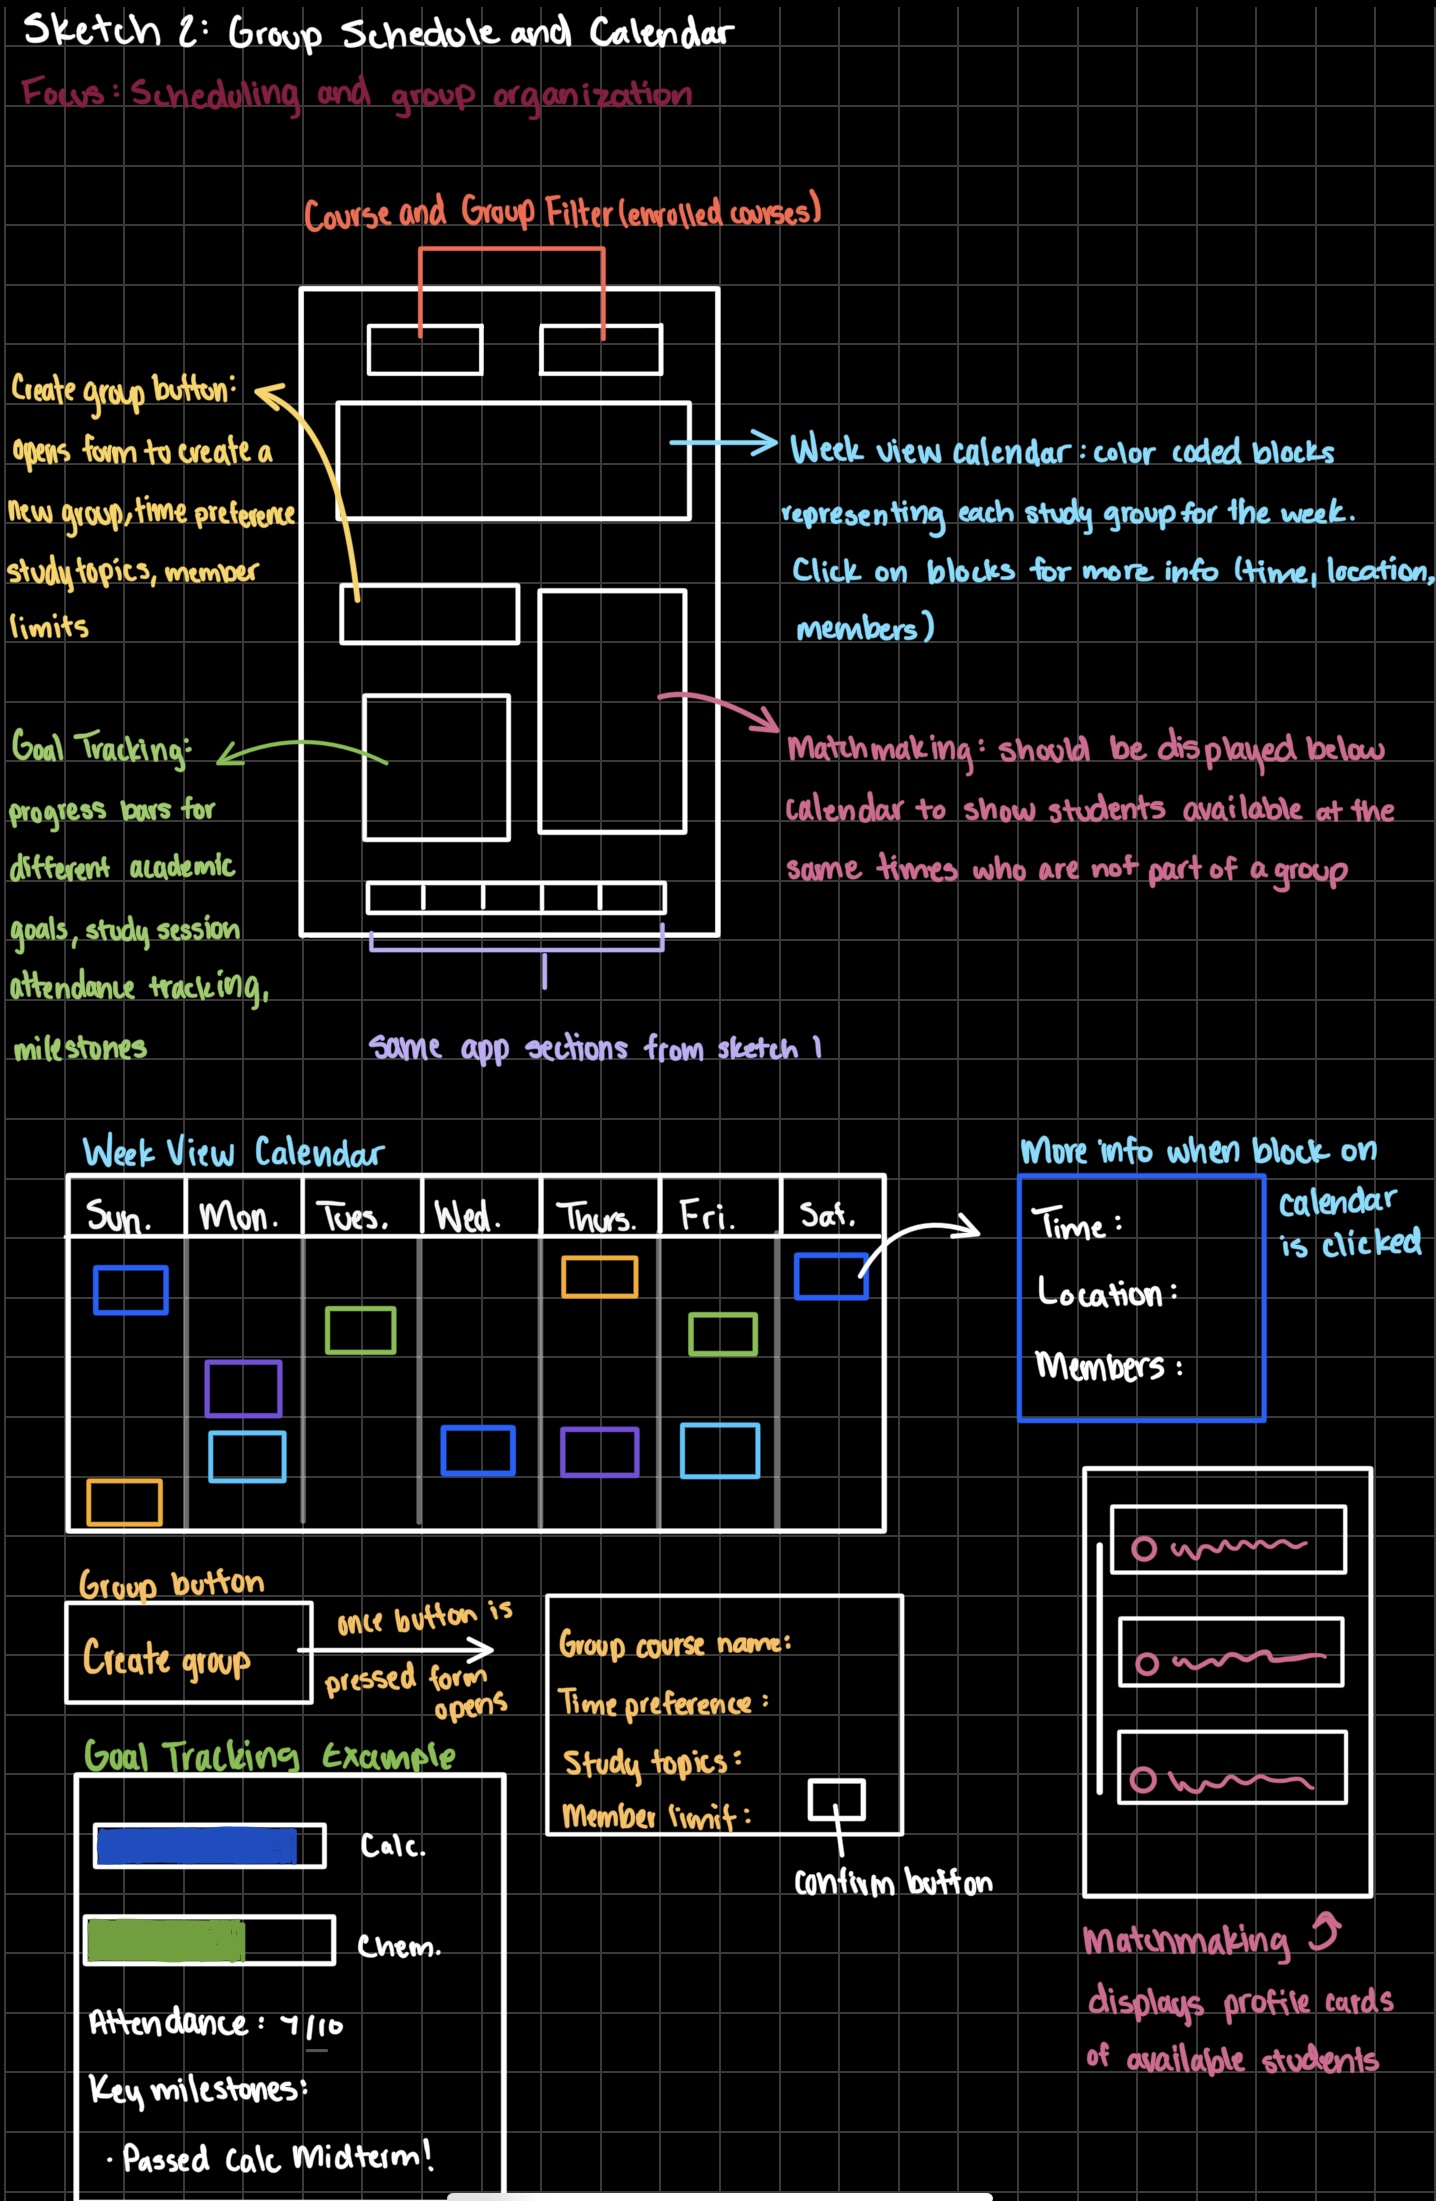 Sketch 2: Group Schedule and Calendar
Focus: Scheduling and group organization
Course and Group Filter (enrolled courses)
Create group button:
opens form to create a
new group, time preference
study topics, member
limits
Week view calendar: color coded blocks
representing each study group for the week.
Click on blocks for more info (time, location,
members)
Goal Tracking:
progress bars for
different academic
goals, study session
attendance tracking,
milestones
Matchmaking: should be displayed below
calendar to show students available at the
same times who are not part of a group
same app sections from sketch 1
Week View Calendar
Sun. Mon. Tues. Wed. Thurs. Fri. Sat.
More info when block on
calendar
is clicked
Time:
Location:
Members:
Group button
Create group
once button is
pressed form
opens
Group course name:
Time preference:
Study topics:
Member limit:
confirm button
Goal Tracking Example
Calc.
Chem.
Attendance: 7/10
Key milestones:
· Passed Calc Midterm!
Matchmaking
displays profile cards
of available students